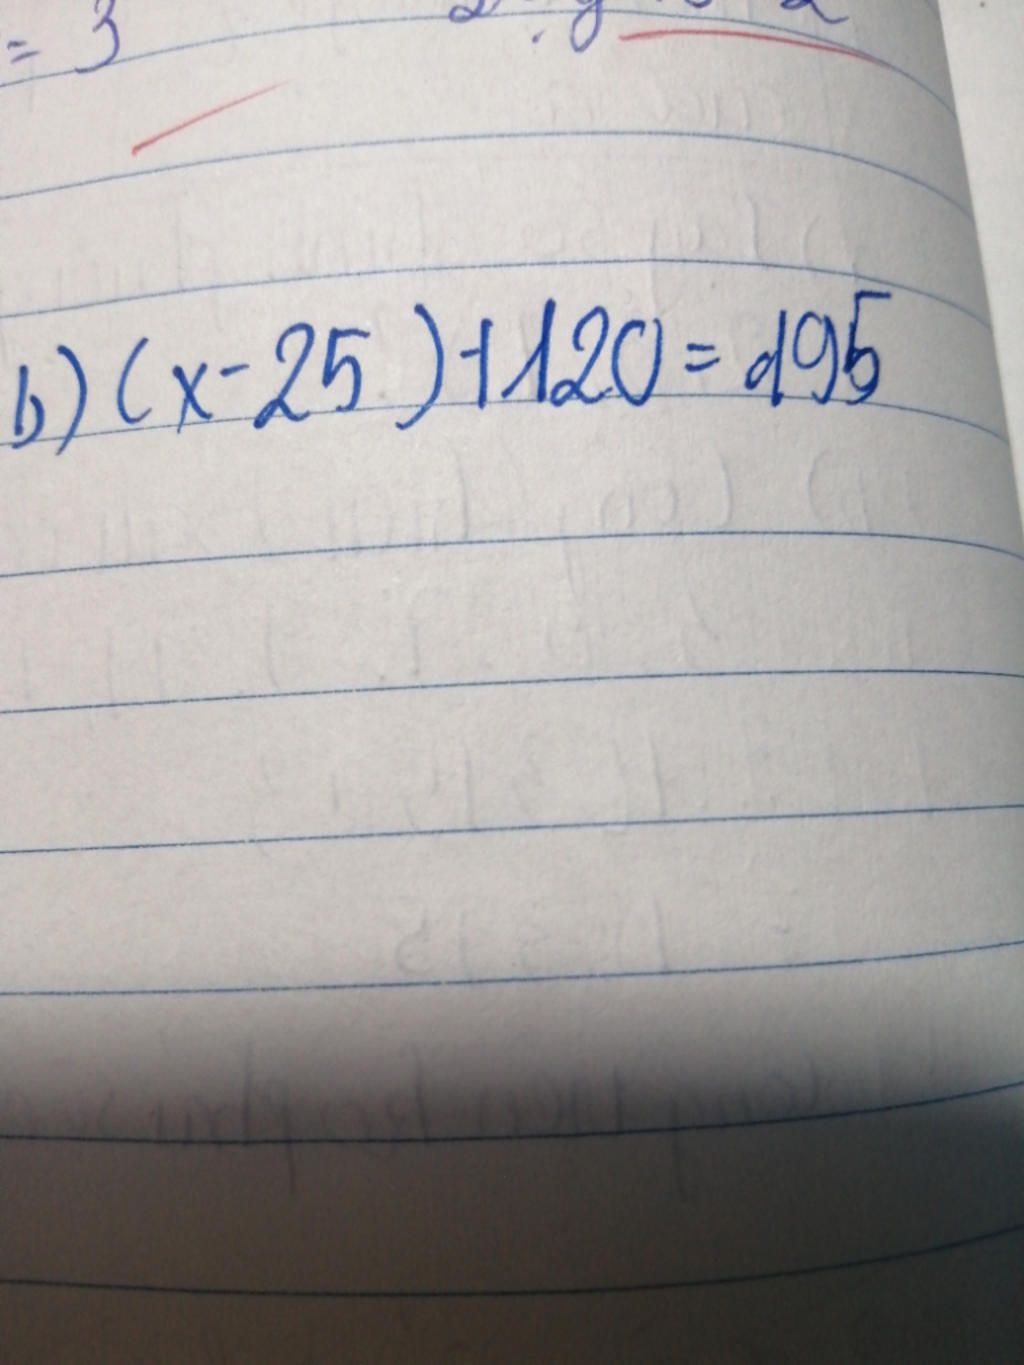 = 3
b) (x-25)+120=195